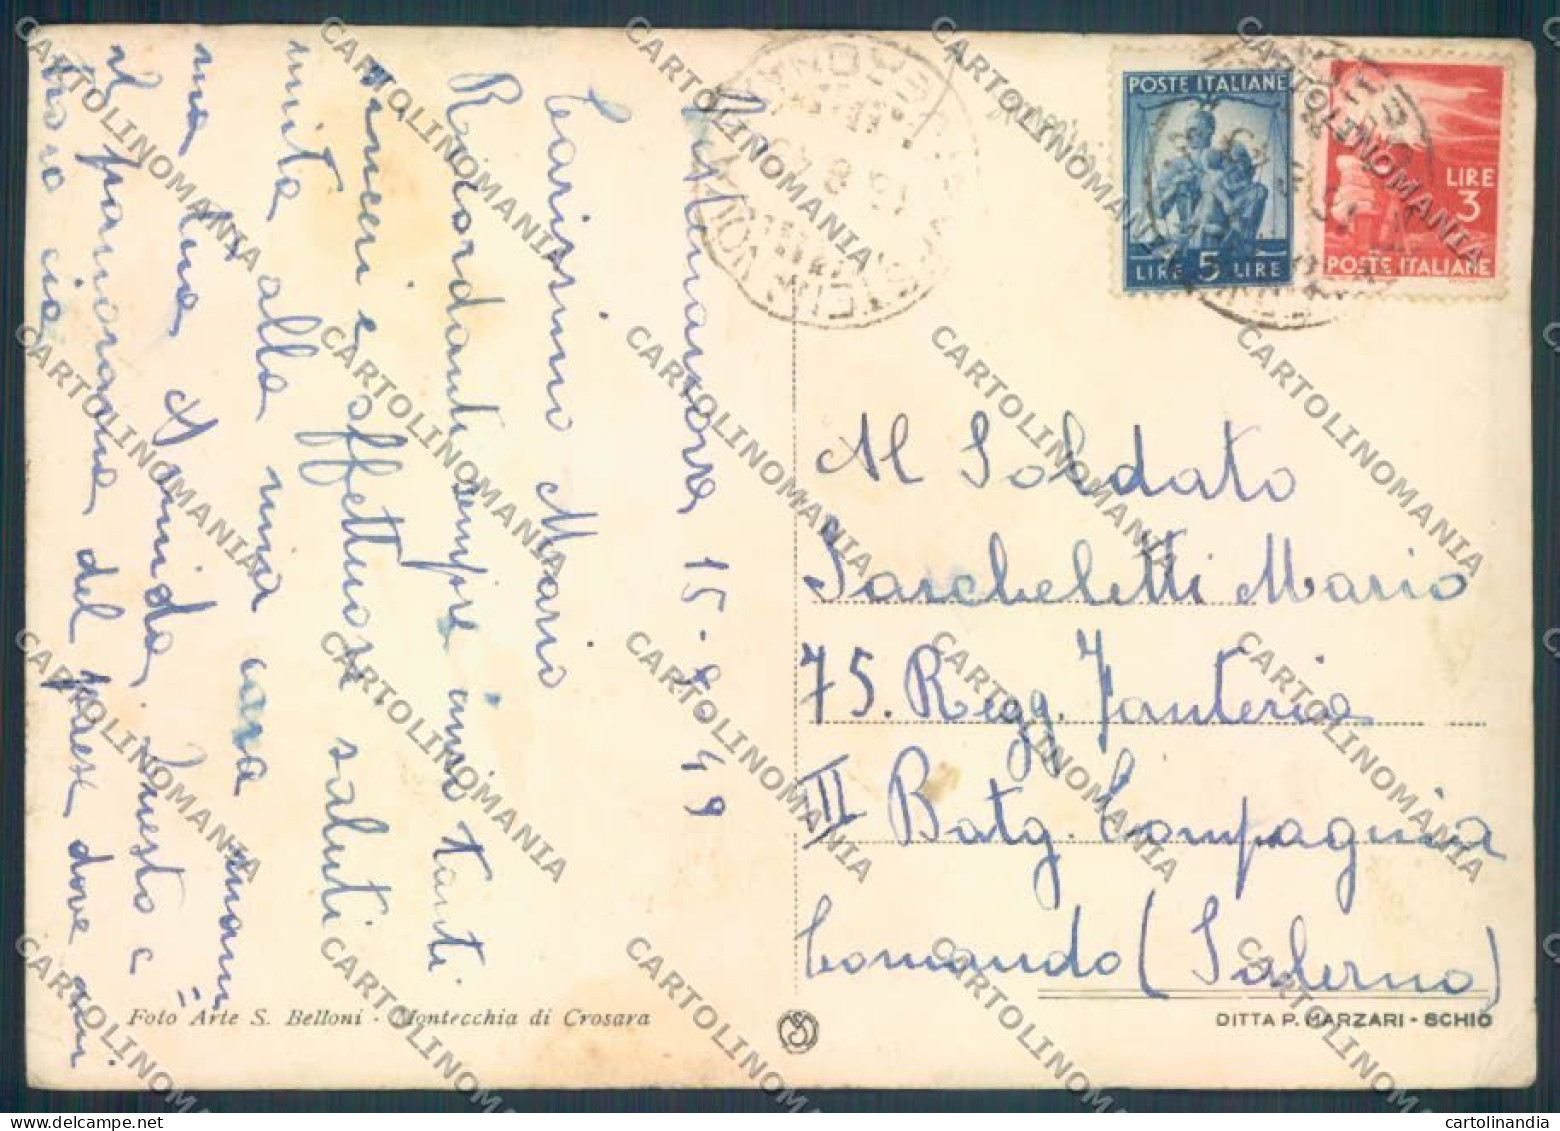 Castelvero 15.8.49
Carissimo Mario
Ricordanti sempre invio tanti
sinceri e affettuosi saluti
unita alla mia cara mamma
tua Armida. Questo è
il panorama del paese dove mi
trovo ciao
Foto Arte S. Belloni - Montecchia di Crosara
POSTE ITALIANE
LIRE 5 LIRE
LIRE
3
POSTE ITALIANE
VERONA
Al Soldato
Pascheletti Mario
75. Regg. Fanteria
II Batg. Compagnia
Comando (Salerno)
DITTA P. MARZARI - SCHIO
CARTOLINOMANIA
cartolinandia